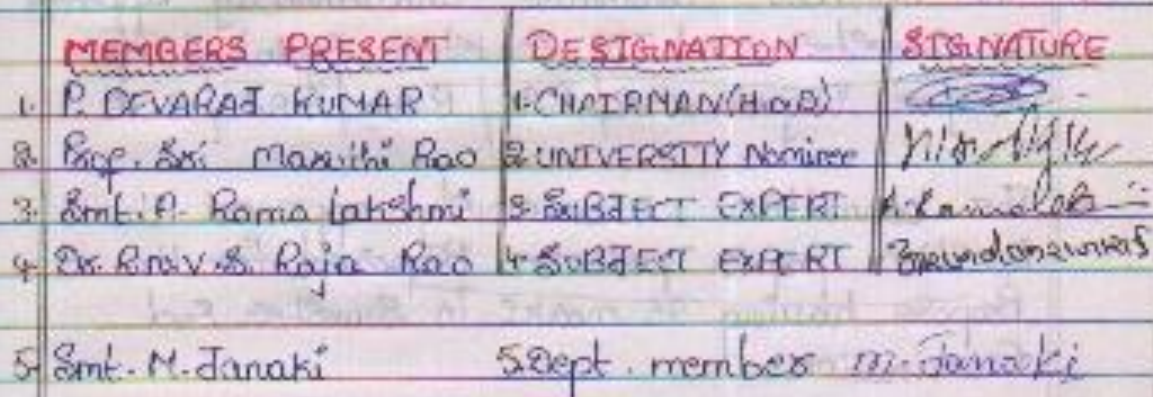 MEMBERS PRESENT DESIGNATION SIGNATURE
1. P. DEVARAJ KUMAR 1. CHAIRMAN (H.O.D)
2. Prof. Sri Maruthi Rao 2. UNIVERSITY Nominee
3. Smt. P. Rama Lakshmi 3. SUBJECT EXPERT
4. Dr. R.M.V.S. Raja Rao 4. SUBJECT EXPERT
5. Smt. M. Janaki 5. Dept. member M. Janaki